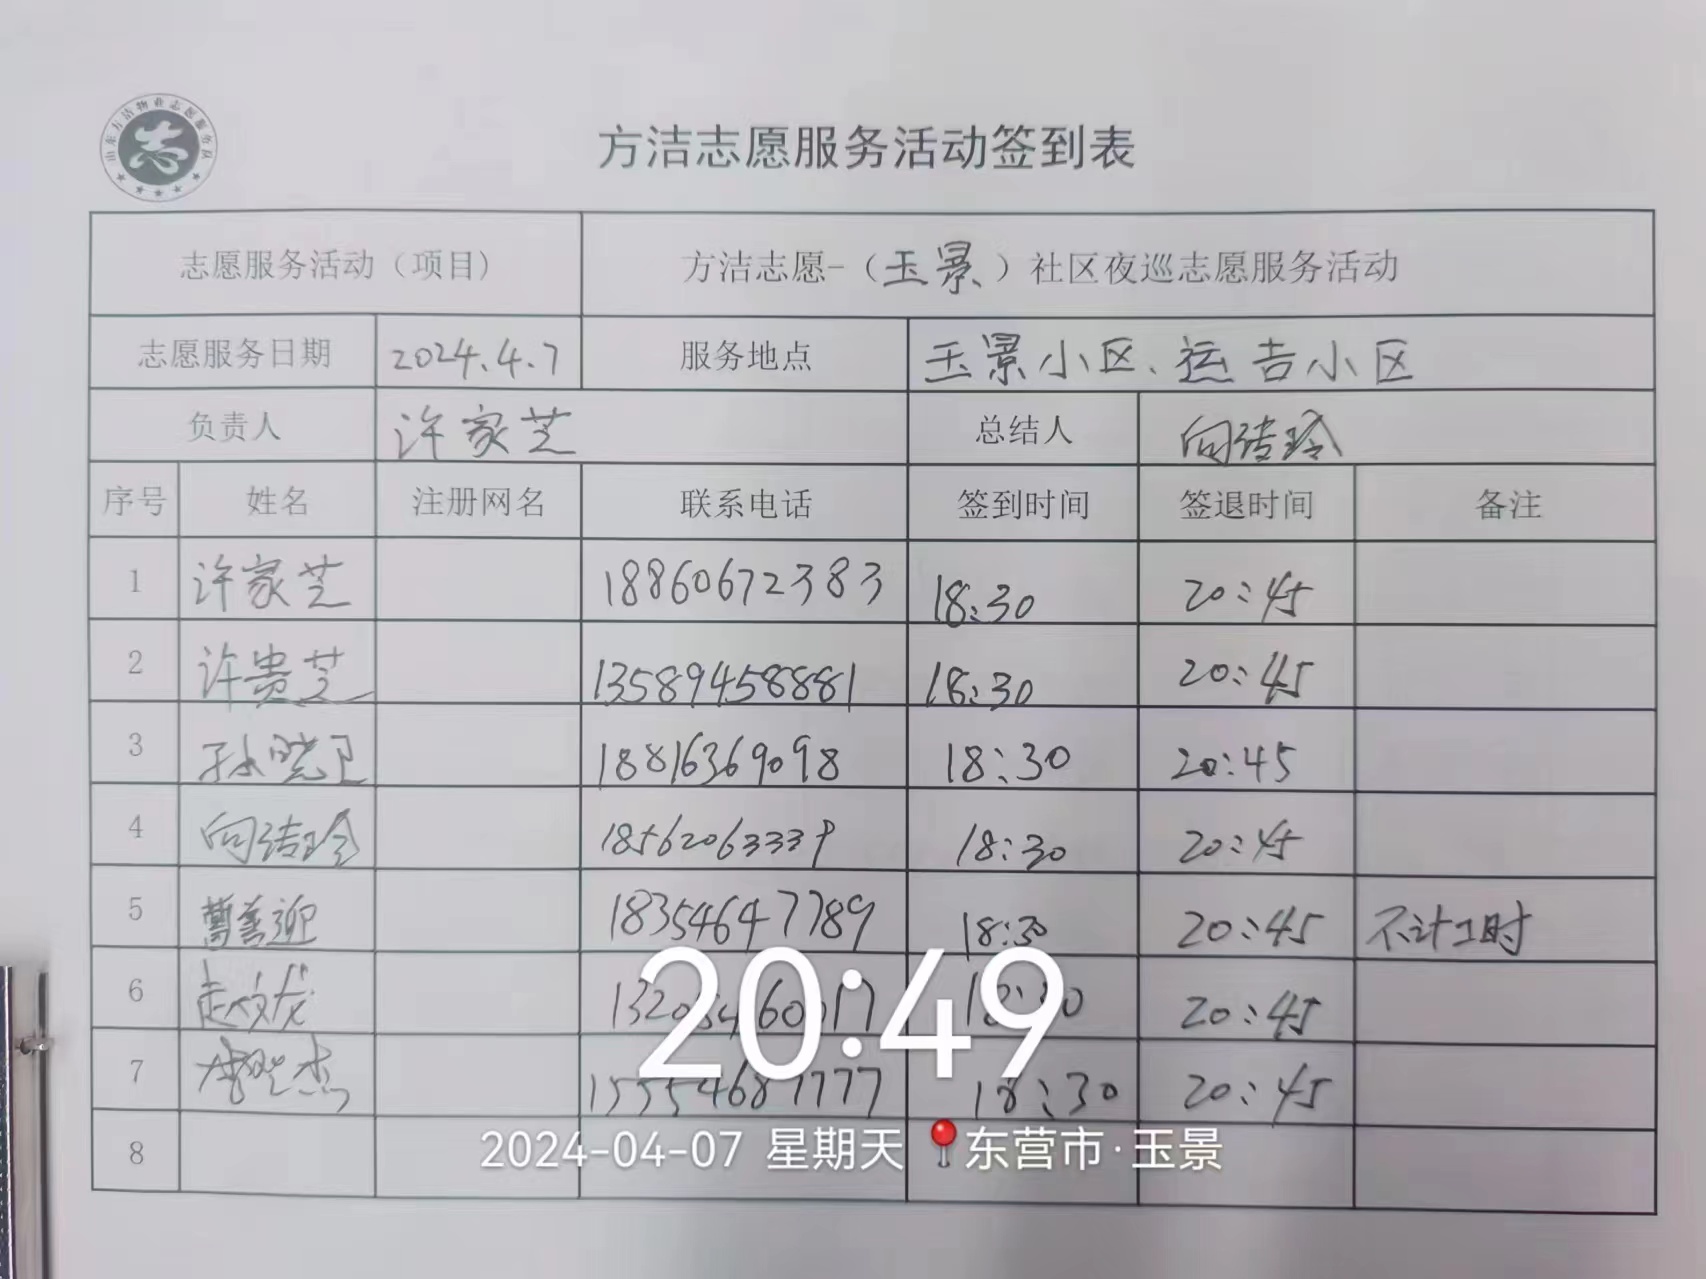 山东方洁物业志愿服务队
志
方洁志愿服务活动签到表
志愿服务活动（项目） 方洁志愿-（玉景）社区夜巡志愿服务活动
志愿服务日期 2024.4.7 服务地点 玉景小区、运吉小区
负责人 许家芝 总结人 向洁玲
序号 姓名 注册网名 联系电话 签到时间 签退时间 备注
1 许家芝 18860672383 18:30 20:45
2 许贵芝 13589458881 18:30 20:45
3 孙晓卫 18816369098 18:30 20:45
4 向洁玲 18562063339 18:30 20:45
5 曹善迎 18354647789 18:30 20:45 不计工时
6 赵文龙 20:45
7 15554687777 18:30 20:45
8
20:49
2024-04-07 星期天 东营市·玉景